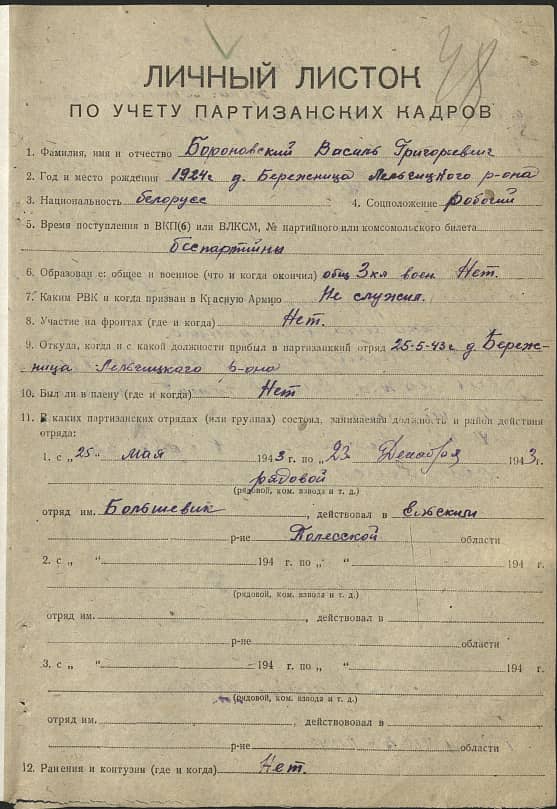 48
ЛИЧНЫЙ ЛИСТОК
ПО УЧЕТУ ПАРТИЗАНСКИХ КАДРОВ
1. Фамилия, имя и отчество Бороновский Василь Григорьевич
2. Год и место рождения 1924г д. Бережница Лельчицкого р-она
3. Национальность белорусс 4. Соцположение рабочий
5. Время поступления в ВКП(б) или ВЛКСМ, № партийного или комсомольского билета
беспартийны
6. Образование: общее и военное (что и когда окончил) общ 3кл воен Нет.
7. Каким РВК и когда призван в Красную Армию Не служил.
8. Участие на фронтах (где и когда) Нет.
9. Откуда, когда и с какой должности прибыл в партизанский отряд 25-5-43г д. Береж-
ница Лельчицкого р-она
10. Был ли в плену (где и когда) Нет
11. В каких партизанских отрядах (или группах) состоял, занимаемая должность и район действия
отряда:
1. с „25" мая 1943 г. по „23 Декабря 1943 г.
рядовой
(рядовой, ком. взвода и т. д.)
отряд им. Большевик, действовал в Ельском
р-не Полесской области
2. с „ " 194 г. по „ " 194 г.
(рядовой, ком. взвода и т. д.)
отряд им. , действовал в
р-не области
3. с „ " 194 г. по „ " 194 г.
(рядовой, ком. взвода и т. д.)
отряд им. , действововал в
р-не области
12. Ранения и контузии (где и когда) Нет.